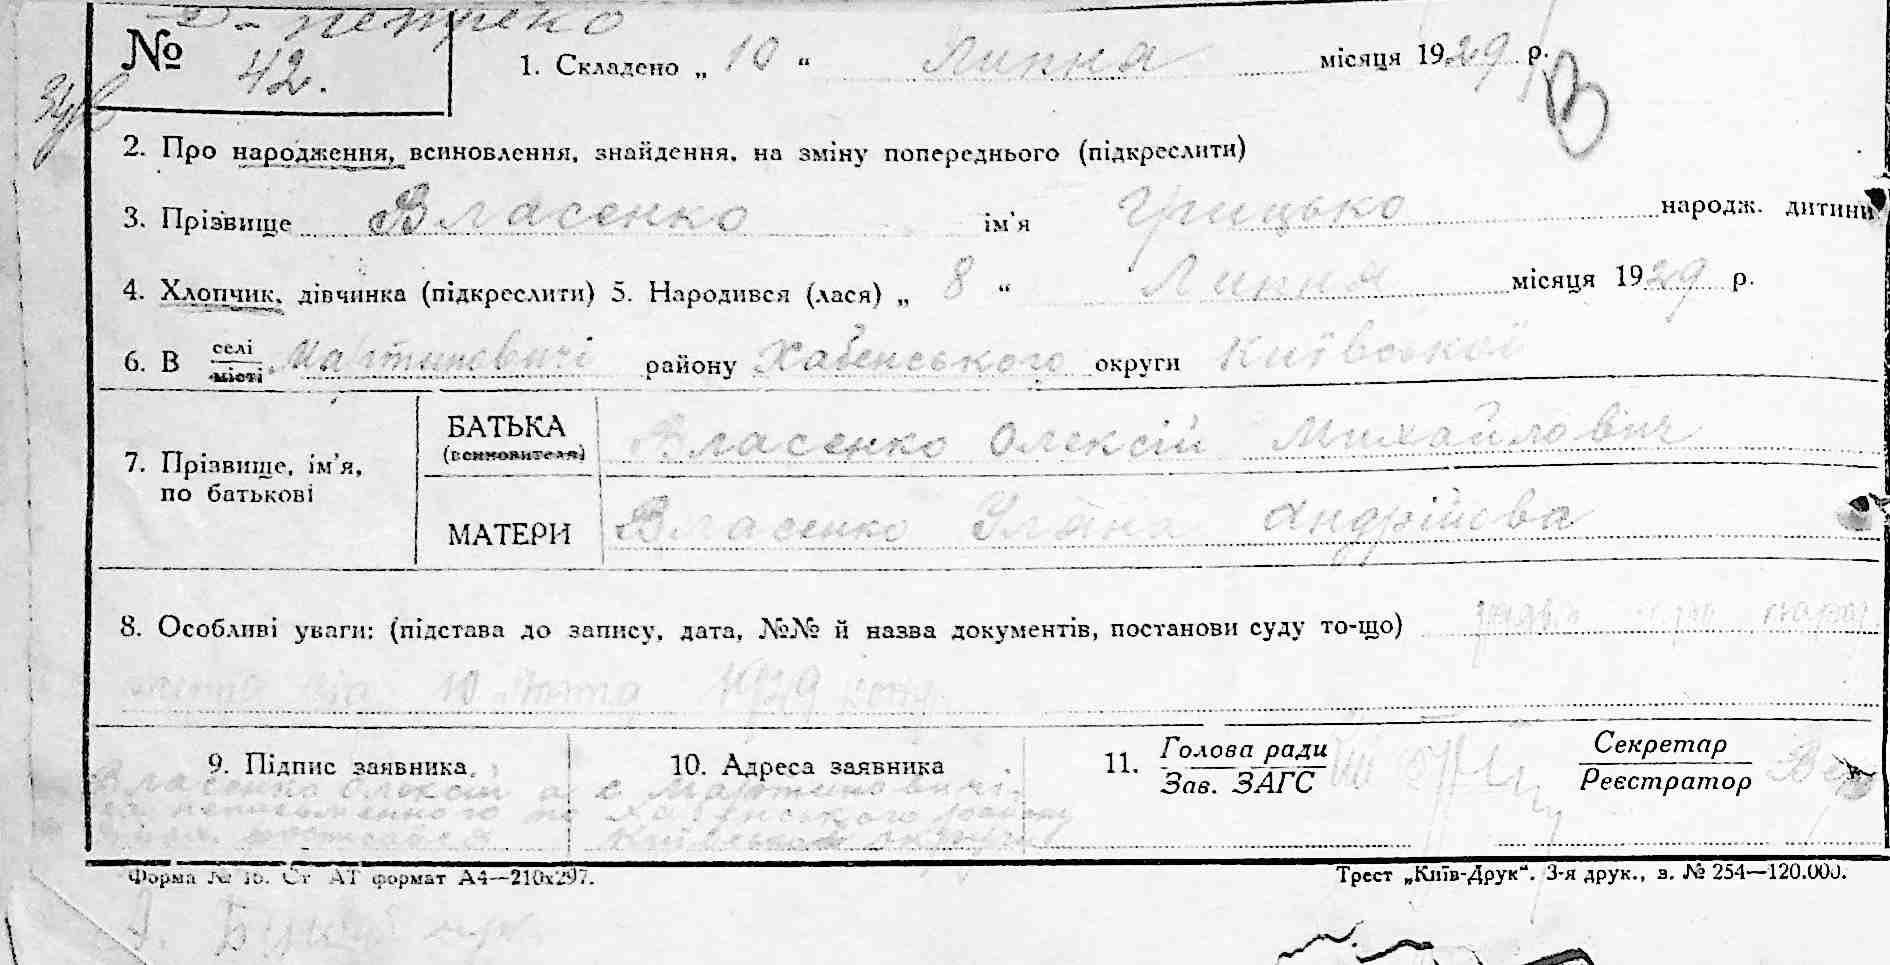 № 42.
1. Складено „ 10 “ Липня місяця 1929 р.
2. Про народження, всиновлення, знайдення, на зміну попереднього (підкреслити)
3. Прізвище Власенко ім'я Грицько народж. дитини
4. Хлопчик, дівчинка (підкреслити) 5. Народився (лася) „ 8 “ Липня місяця 1929 р.
6. В селі місті Мартиновичі району Хабенського округи Київської
7. Прізвище, ім'я, по батькові
БАТЬКА (всиновителя) Власенко Олексій Михайлович
МАТЕРИ Власенко Уляна Андрійова
8. Особливі уваги: (підстава до запису, дата, №№ й назва документів, постанови суду то-що)
від 10 1929 року
9. Підпис заявника
Власенко Олексій а
неписьменного
10. Адреса заявника
с Мартиновичі
Хабенського району
Київської округи
11. Голова ради
Зав. ЗАГС
Секретар
Реєстратор
Форма № 16. Ст АТ формат А4—210х297.
Трест „Київ-Друк“. 3-я друк., з. № 254—120.000.